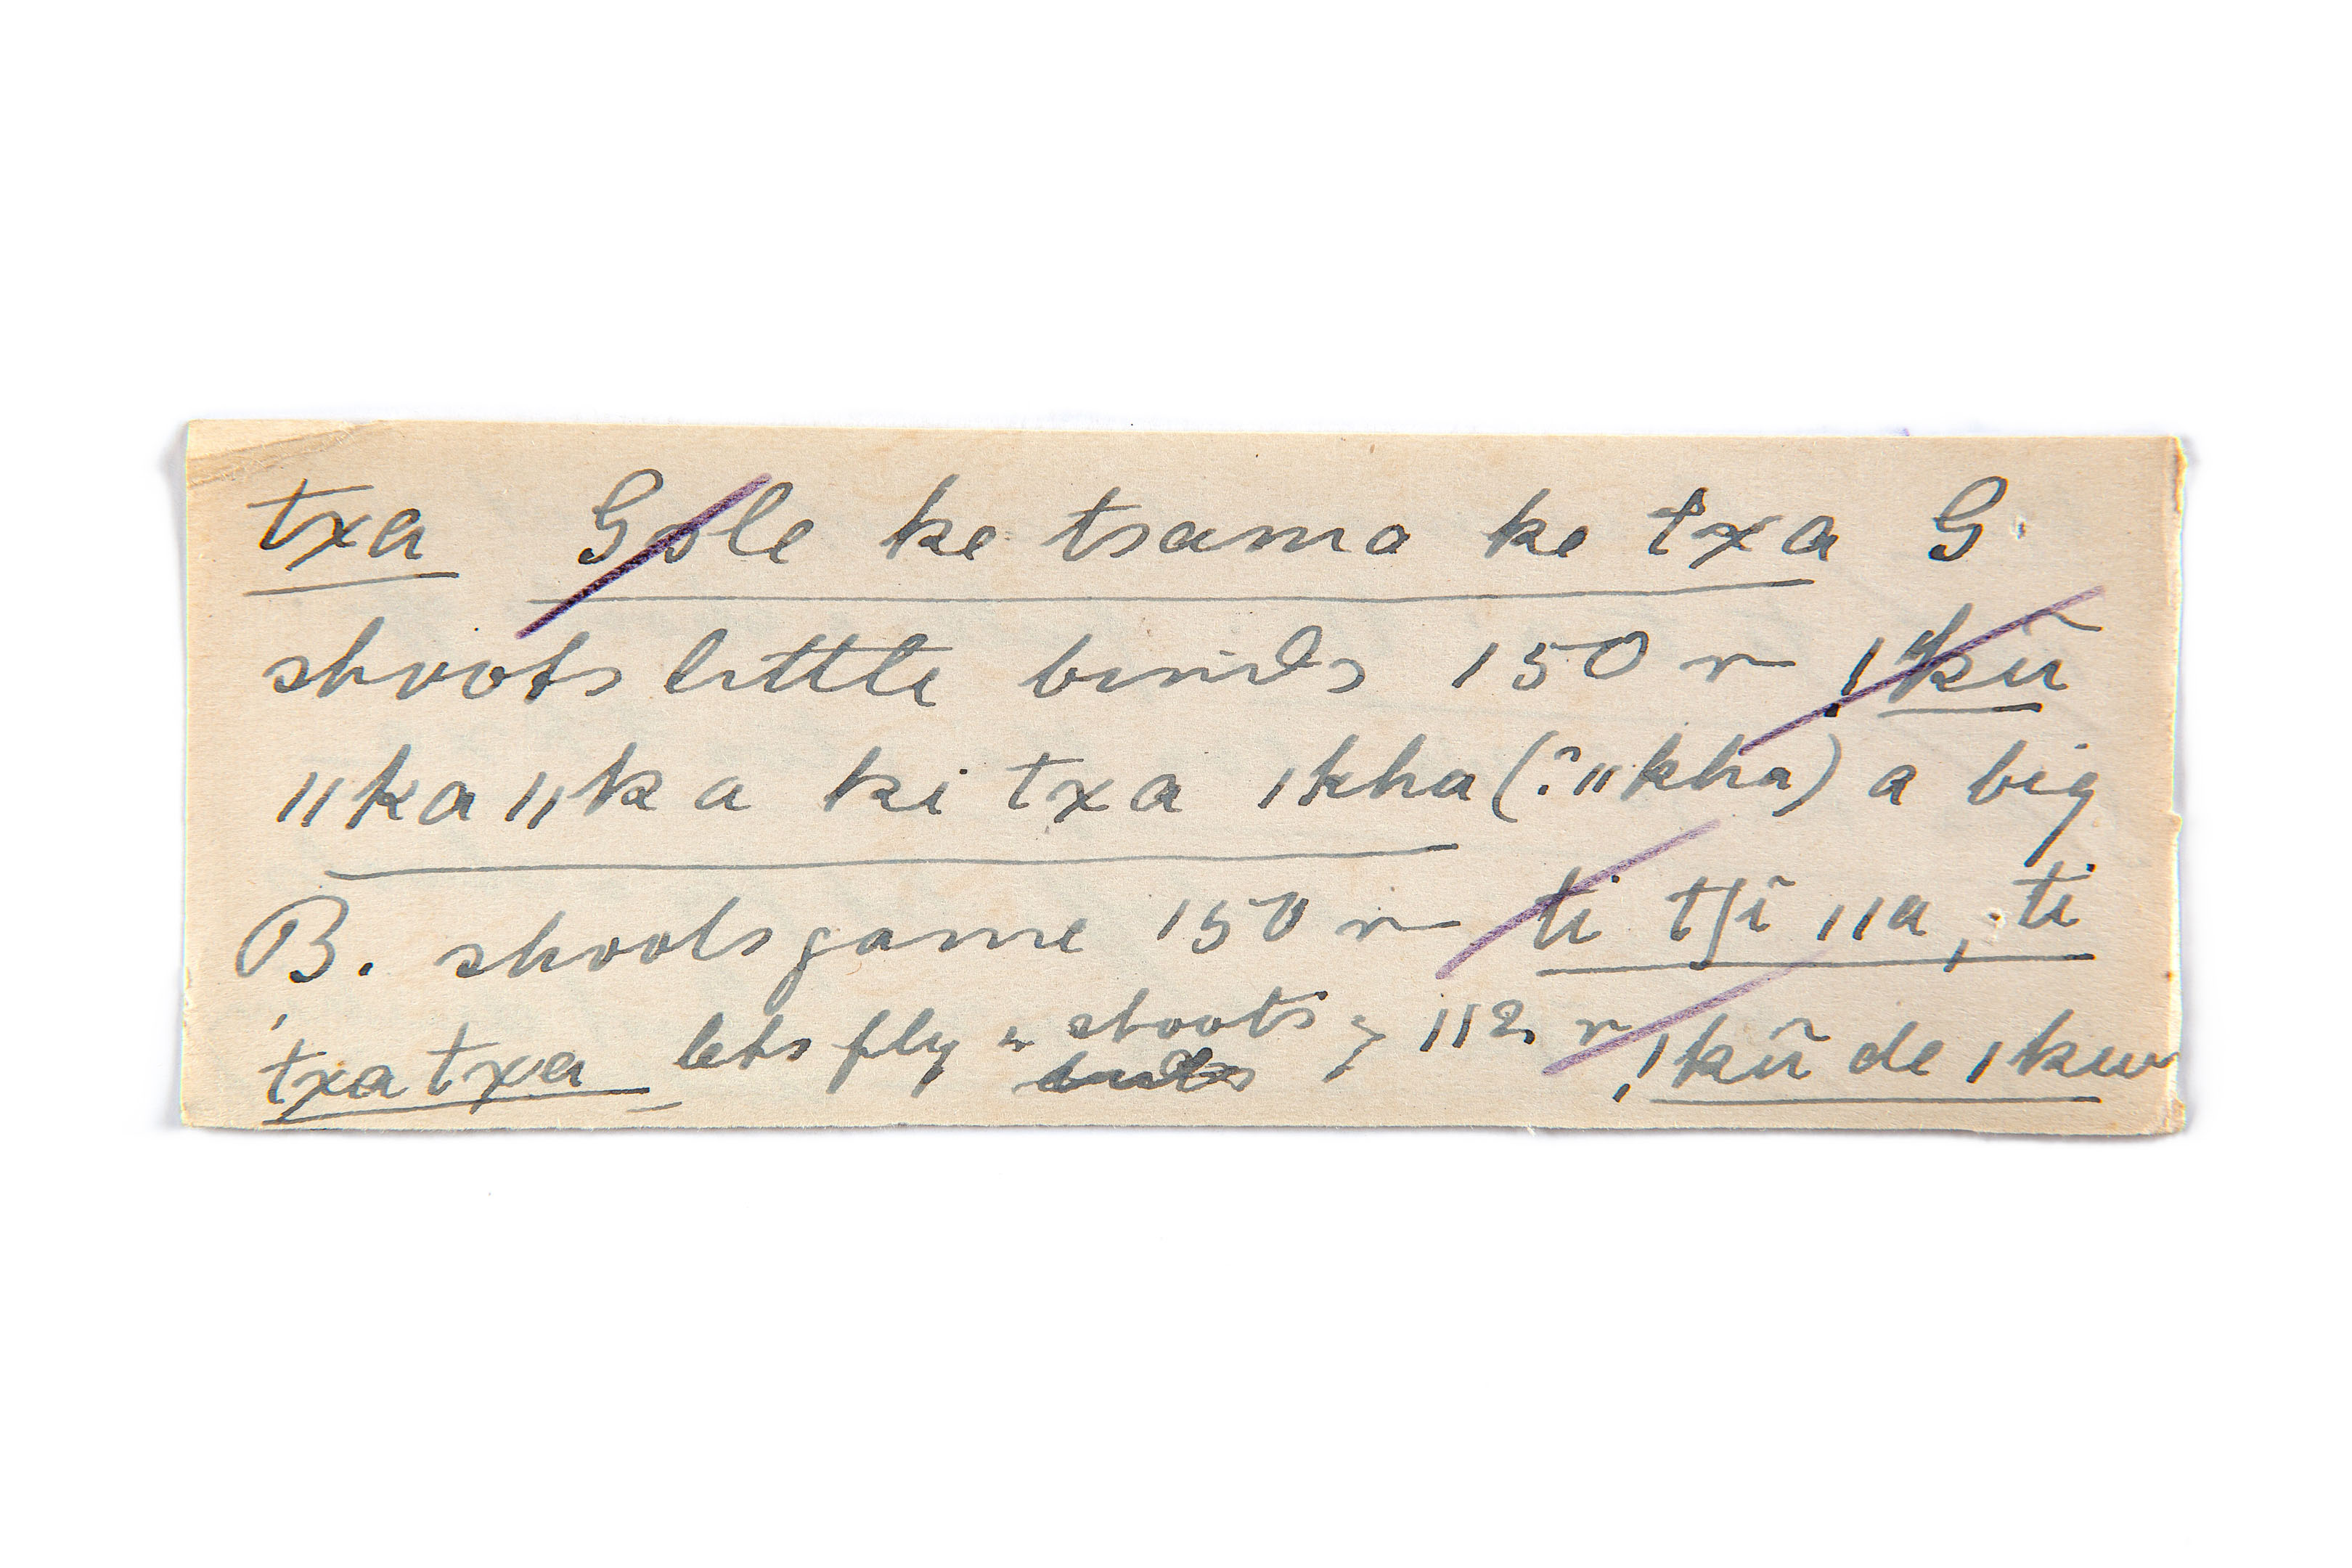 txa Gole ke tsama ke txa G.
shoots little birds 150 r !kũ
ǁkaǁka ki txa ǀkha (?ǁkha) a big
B. shoots game 150 r ti tʃĩ ǁa, ti
txatxa lets fly, shoots, 112 r !kũ de ǀkw